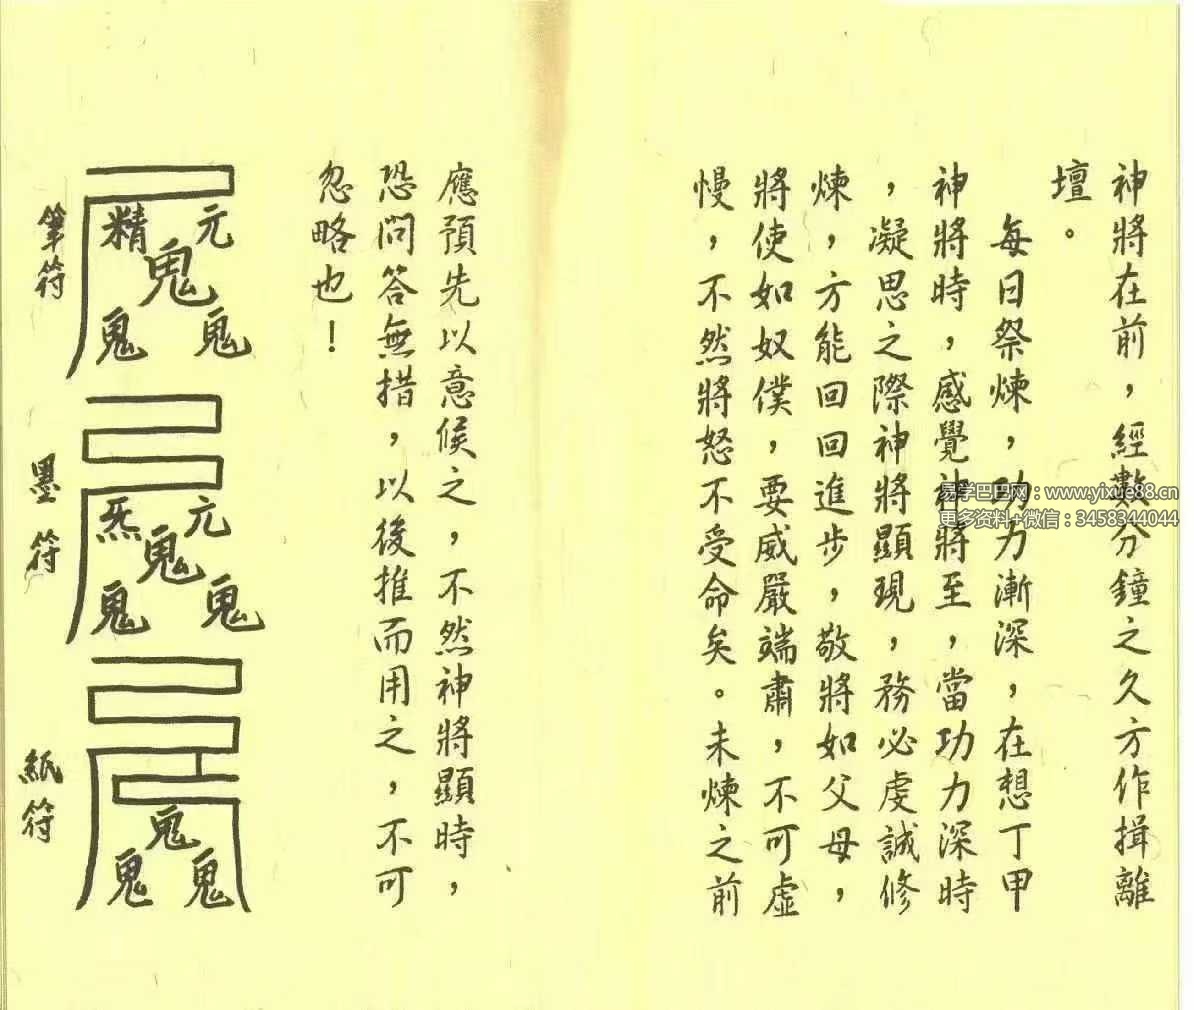 神將在前，經數分鐘之久方作揖離
壇。
每日祭煉，功力漸深，在想丁甲
神將時，感覺神將至，當功力深時
，凝思之際神將顯現，務必虔誠修
煉，方能回回進步，敬將如父母，
將使如奴僕，要威嚴端肅，不可虛
慢，不然將怒不受命矣。未煉之前
應預先以意候之，不然神將顯時，
恐問答無措，以後推而用之，不可
忽略也！
筆符
元精鬼鬼鬼
墨符
元炁鬼鬼鬼
紙符
鬼鬼鬼
易学巴巴网：www.yixue88.cn
更多资料+微信：3458344044